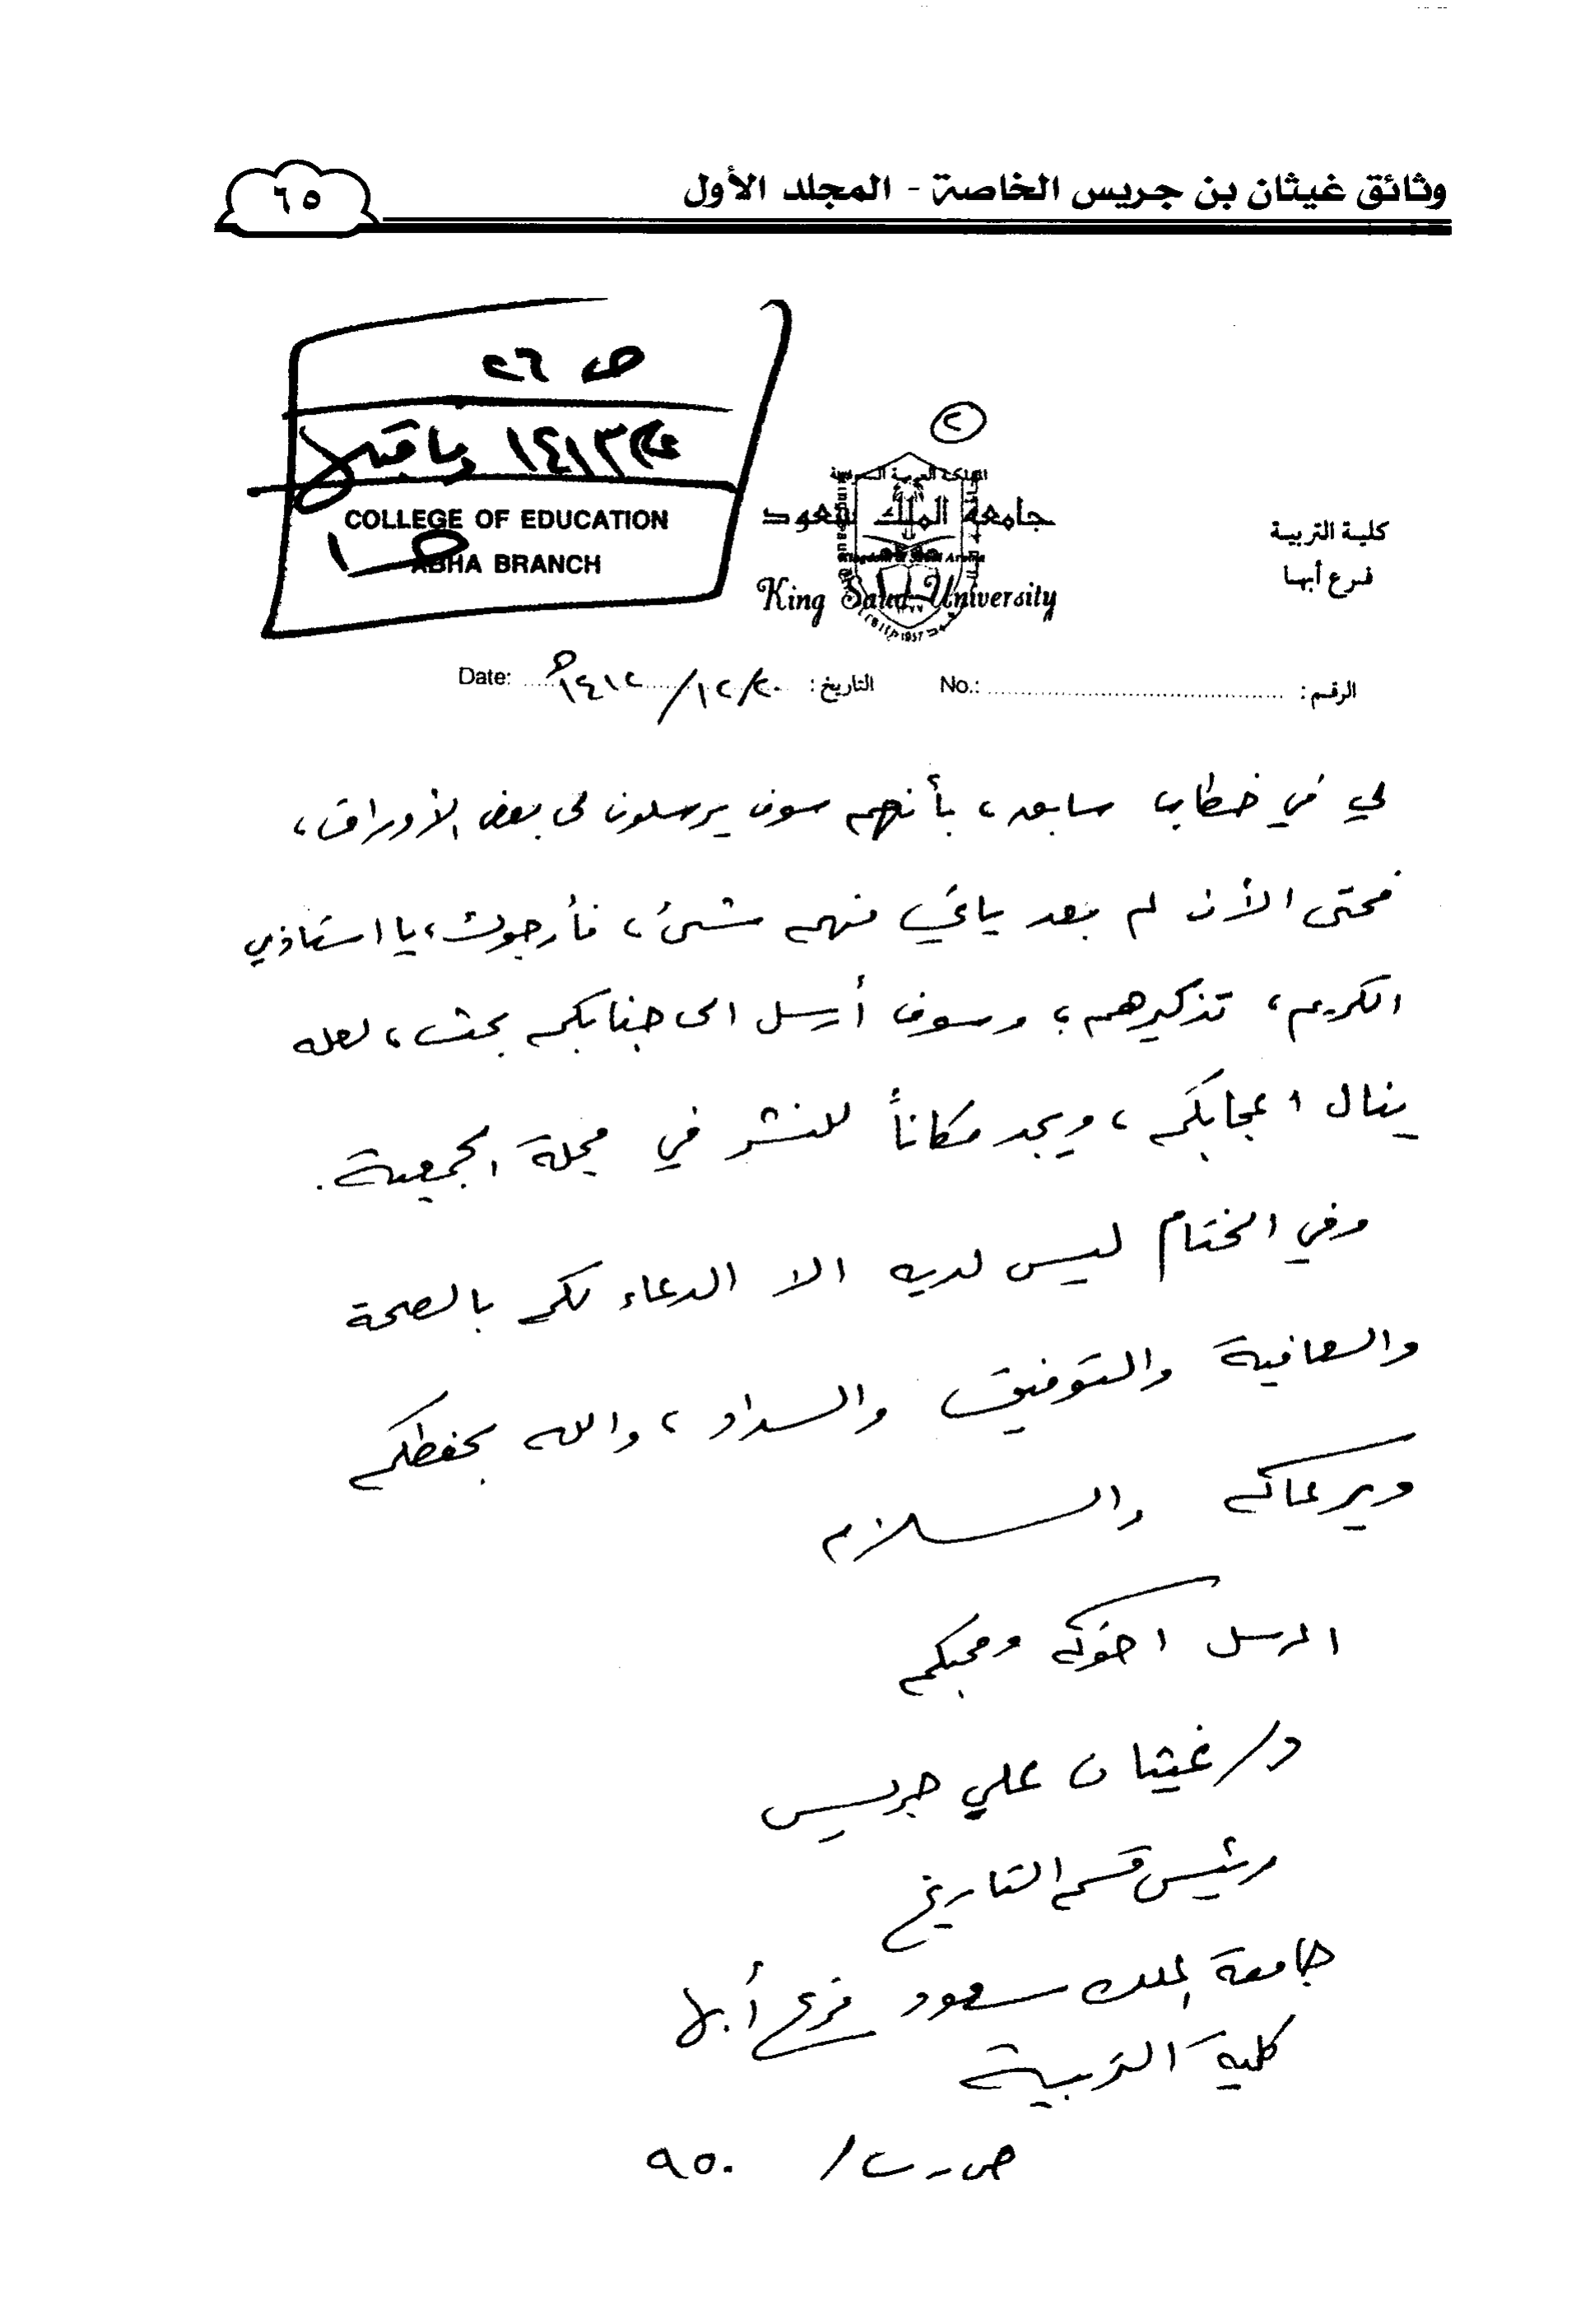 وثائق غيثان بن جريس الخاصة - المجلد الأول
٦٥
ص ٢٦
١٤١٣هـ وما قبلها
ص ١
COLLEGE OF EDUCATION
ABHA BRANCH
٢
المملكة العربية السعودية
جامعة الملك سعود
King Saud University
1957
كلية التربية
فرع أبها
الرقم: No.:
التاريخ: ٢٠/١٢/١٤١٢هـ Date:
لي في خطاب سابق، بأنهم سوف يرسلون لي بعض الأوراق،
فحتى الأن لم بعد ياتي منهم شئ، فأرجوك، يا استاذي
الكريم، تذكيرهم؛ وسوف أرسل الى جنابكم بحث، لعله
ينال اعجابكم، ويجد مكاناً للنشر في مجلة الجمعية.
وفي الختام ليس لديه الا الدعاء لكم بالصحة
والعافية والتوفيق والسداد، والله يحفظكم
ويرعاكم والسلام
المرسل اخوكم ومحبكم
د/ غيثان علي جريس
رئيس قسم التاريخ
جامعة الملك سعود فرع أبها
كلية التربية
ص.ب/ ٩٥٠